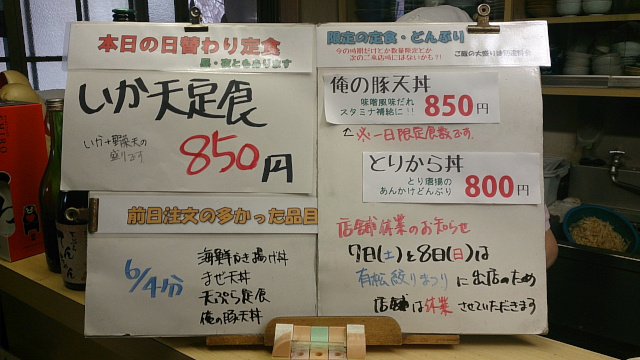 本日の日替わり定食
昼・夜ともあります
いか天定食
いか+野菜天の
盛りです
850円
前日注文の多かった品目
6/4分
海鮮かき揚げ丼
まぜ天丼
天ぷら定食
俺の豚天丼
限定の定食・どんぶり
今の時期だけとか数量限定とか
次のご来店時にはないかも?!
俺の豚天丼
味噌風味だれ
スタミナ補給に!!
850円
※一日限定食数です。
とりから丼
とり唐揚の
あんかけどんぶり
800円
店舗休業のお知らせ
7日(土)と8日(日)は
有松絞りまつりに出店のため
店舗は休業させていただきます